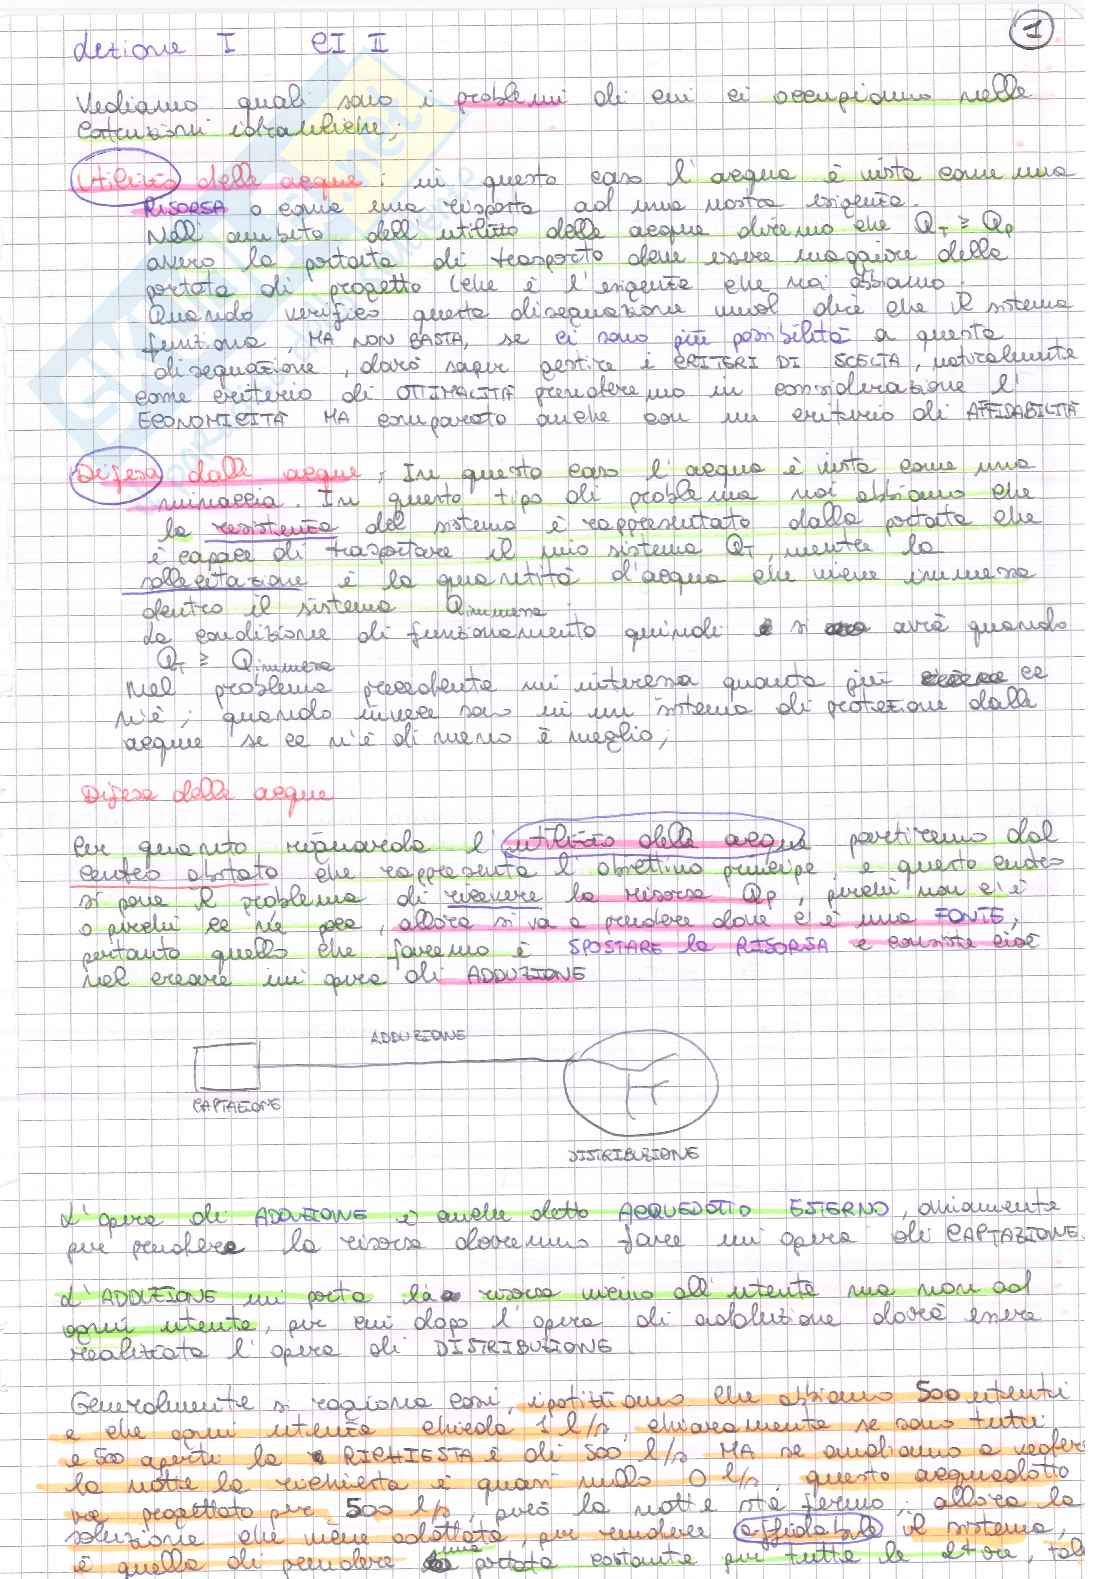 1
Lezione I e II
Vediamo quali sono i problemi di cui ci occupiamo nelle
costruzioni idrauliche;
Utilità delle acque: in questo caso l'acqua è vista come una
RISORSA o come una risposta ad una nostra esigenza.
Nell'ambito dell'utilità delle acque diremo che QT ≥ QP
ovvero la portata di trasporto deve essere maggiore della
portata di progetto (che è l'esigenza che noi abbiamo.
Quando verifico questa disequazione vuol dire che il sistema
funziona, MA NON BASTA, se ci sono più possibilità a questa
disequazione, dovrò saper gestire i CRITERI DI SCELTA, naturalmente
come criterio di OTTIMALITÀ prenderemo in considerazione l'
ECONOMICITÀ MA comparato anche con un criterio di AFFIDABILITÀ
Difesa dalle acque; In questo caso l'acqua è vista come una
minaccia. In questo tipo di problema noi abbiamo che
la resistenza del sistema è rappresentata dalla portata che
è capace di trasportare il mio sistema QT, mentre la
sollecitazione è la quantità d'acqua che viene immessa
dentro il sistema Qimmessa.
La condizione di funzionamento quindi si avrà quando
QT ≥ Qimmessa
Nel problema precedente mi interessa quanta più ce
n'è; quando invece sono in un sistema di protezione dalle
acque se ce n'è di meno è meglio;
Difesa delle acque
Per quanto riguarda l'utilità delle acque partiremo dal
centro abitato che rappresenta l'obiettivo principe, e questo centro
si pone il problema di ricevere la risorsa QP, perché non c'è
o perché ce n'è poca, allora si va a prendere dove c'è una FONTE,
pertanto quello che faremo è SPOSTARE la RISORSA e consiste cioè
nel creare un'opera di ADDUZIONE
ADDUZIONE
CAPTAZIONE
DISTRIBUZIONE
L'opera di ADDUZIONE è anche detto ACQUEDOTTO ESTERNO, ovviamente
per prendere la risorsa dovremmo fare un'opera di CAPTAZIONE.
L'ADDUZIONE mi porta la risorsa vicino all'utente ma non ad
ogni utente, per cui dopo l'opera di adduzione dovrà essere
realizzata l'opera di DISTRIBUZIONE.
Generalmente si ragiona così, ipotizziamo che abbiamo 500 utenti
e che ogni utenza chieda 1 l/s, chiaramente se sono tutti
e 500 aperti la RICHIESTA è di 500 l/s MA se andiamo a vedere
la notte la richiesta è quasi nulla 0 l/s, questo acquedotto
va progettato per 500 l/s, però la notte sta fermo; allora la
soluzione che viene adottata, per rendere affidabile il sistema,
è quella di prendere una portata costante per tutte le 24 ore, tale